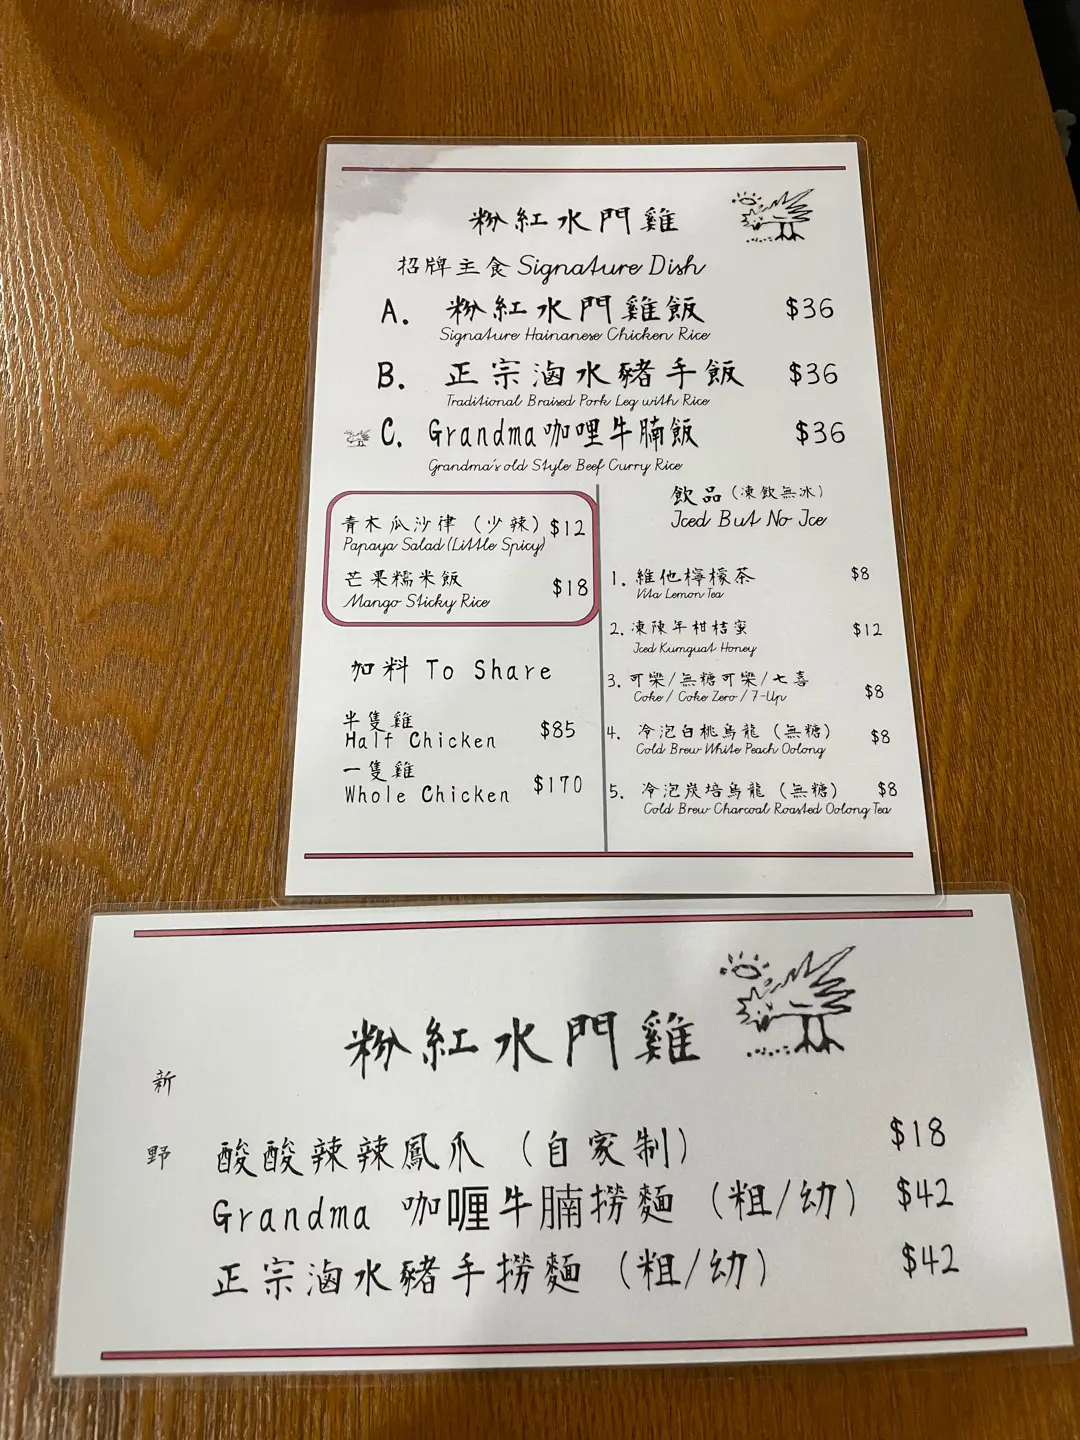 粉紅水門雞
招牌主食 Signature Dish
A. 粉紅水門雞飯 $36
Signature Hainanese Chicken Rice
B. 正宗滷水豬手飯 $36
Traditional Braised Pork Leg with Rice
C. Grandma咖哩牛腩飯 $36
Grandma's old Style Beef Curry Rice
青木瓜沙律（少辣） $12
Papaya Salad (Little Spicy)
芒果糯米飯 $18
Mango Sticky Rice
加料 To Share
半隻雞
Half Chicken $85
一隻雞
Whole Chicken $170
飲品（凍飲無冰）
Iced But No Ice
1. 維他檸檬茶 $8
Vita Lemon Tea
2. 凍陳年柑桔蜜 $12
Iced Kumquat Honey
3. 可樂/無糖可樂/七喜 $8
Coke / Coke Zero / 7-Up
4. 冷泡白桃烏龍（無糖） $8
Cold Brew White Peach Oolong
5. 冷泡炭培烏龍（無糖） $8
Cold Brew Charcoal Roasted Oolong Tea
粉紅水門雞
新
野
酸酸辣辣鳳爪（自家制） $18
Grandma 咖喱牛腩撈麵（粗/幼） $42
正宗滷水豬手撈麵（粗/幼） $42